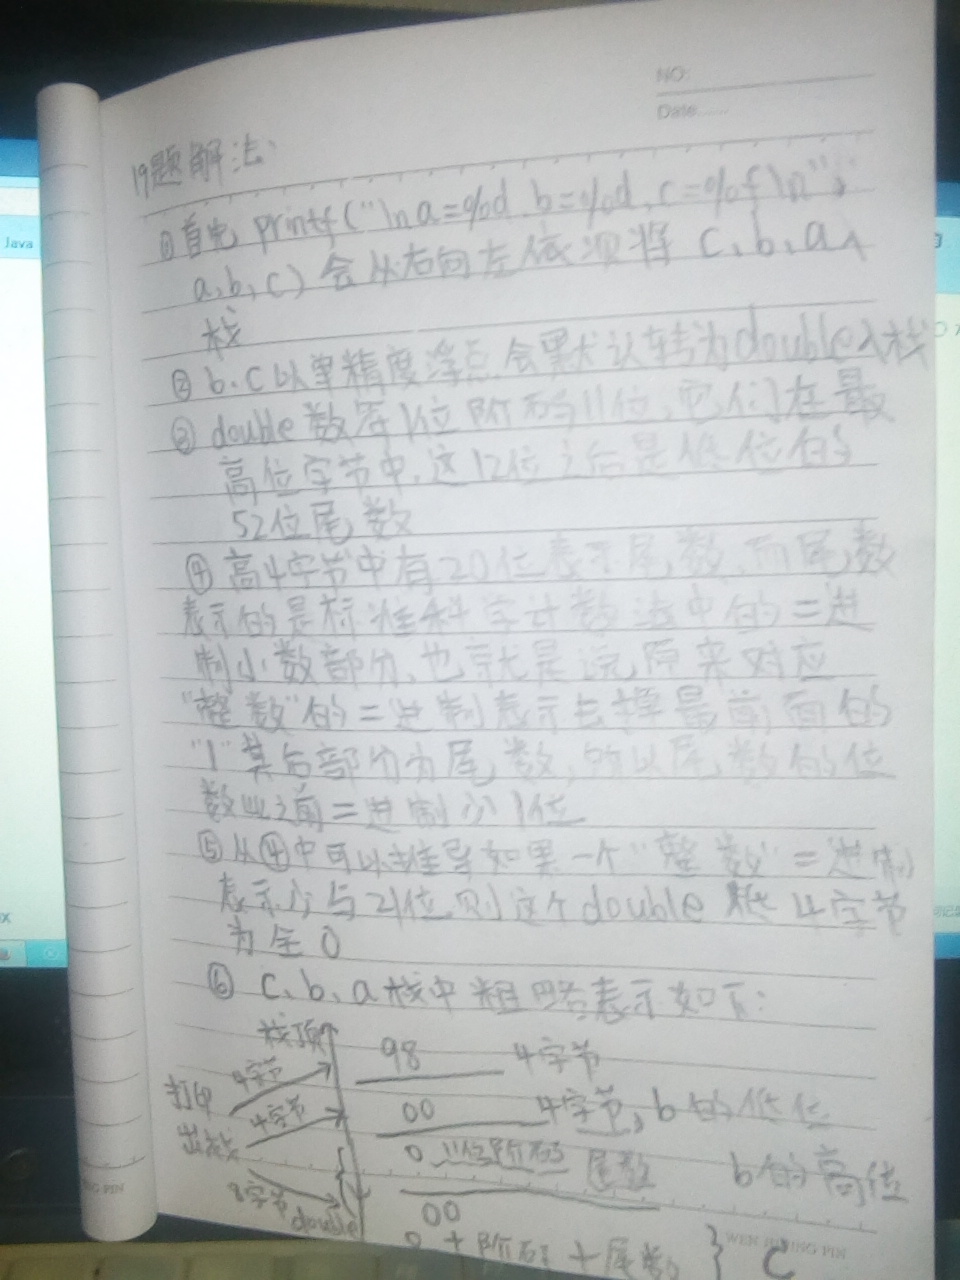 NO:
Date
19题解法:
①首先 printf("\na=%d, b=%d, c=%f\n",
a,b,c) 会从右向左依须将 c、b、a入
栈
②b、c以单精度浮点会默认转为double入栈
③double数符1位阶码11位,它们在最
高位字节中,这12位之后是低位的
52位尾数
④高4字节中有20位表示尾数,而尾数
表示的是标准科学计数法中的二进
制小数部分,也就是说原来对应
"整数"的二进制表示去掉最前面的
"1"其后部分为尾数,所以尾数的位
数比之前二进制少1位
⑤从④中可以推导如果一个"整数"二进制
表示少与21位,则这个double 低4字节
为全0
⑥ c、b、a栈中粗略表示如下:
栈顶
98 4字节
4字节
打印
出栈
4字节
00 4字节,b的低位
0 11位阶码 尾数 b的高位
8字节
double
00
0 + 阶码 + 尾数 } c
Java